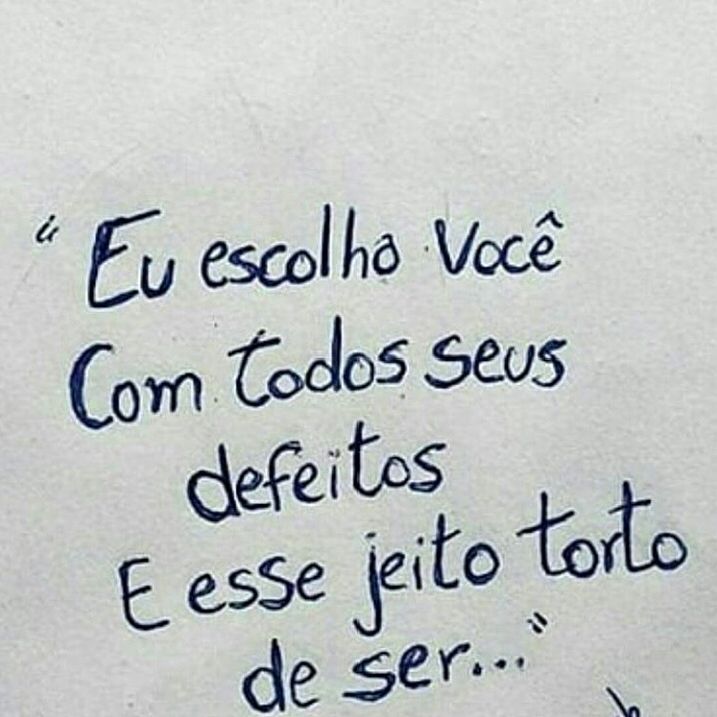 “Eu escolho Você
Com todos seus
defeitos
E esse jeito torto
de ser...”